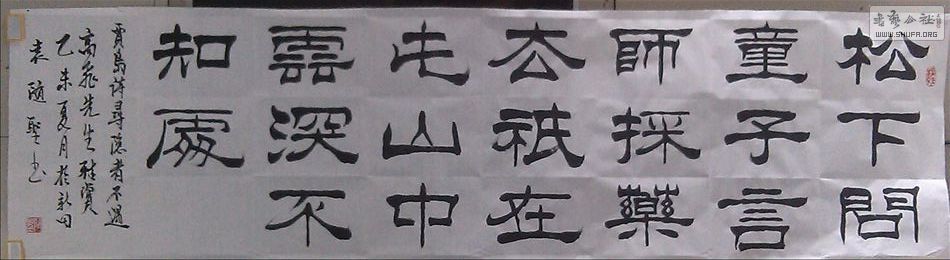 松下問
童子言
師採藥
去祇在
此山中
雲深不
知處
賈島詩尋隱者不遇
高飛先生雅賞
乙未夏月於新田
袁隨聖书
書藝公社
WWW.SHUFA.ORG